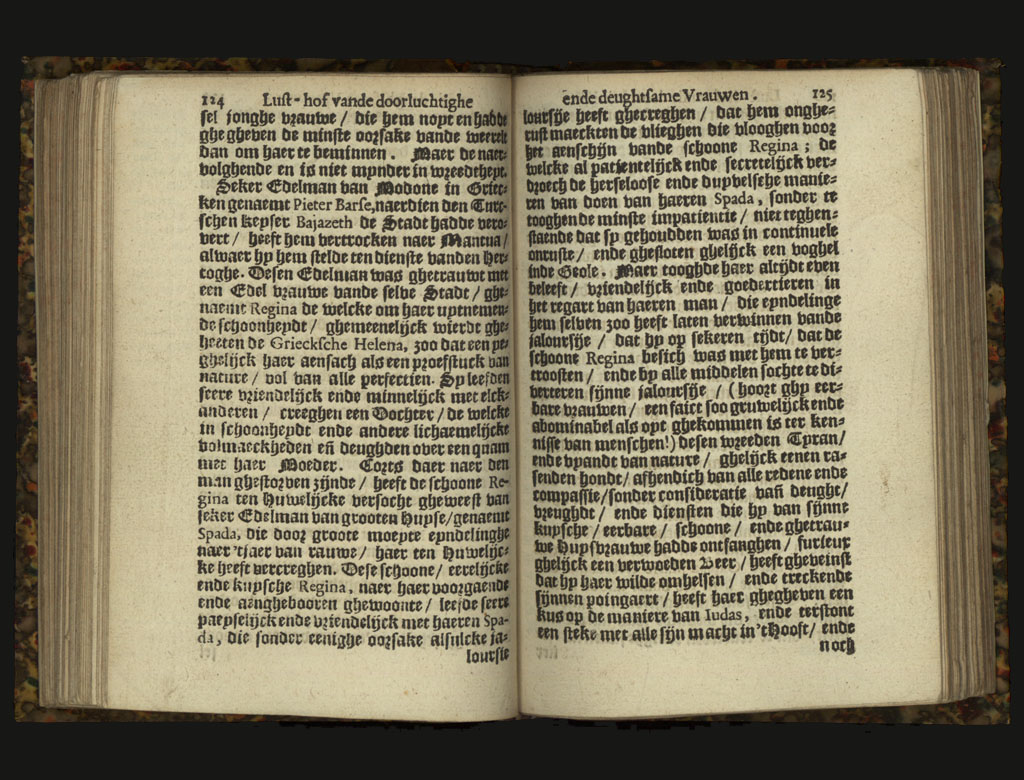 124 Lust-hof vande doorluchtighe
sel jonghe vrauwe / die hem noyt en hadde
ghegheven de minste oorsake vande weerelt
dan om haer te beminnen. Maer de naer-
volghende en is niet mynder in wreedtheyt.
Seker Edelman van Modone in Griec-
ken genaemt Pieter Barse, naerdien den Turc-
schen keyser Bajazeth de Stadt hadde vero-
vert / heeft hem vertrocken naer Mantua /
alwaer hy hem stelde ten dienste vanden Her-
toghe. Desen Edelman was ghetrauwt met
een Edel vrauwe vande selve Stadt / ghe-
naemt Regina de welcke om haer uytnemen-
de schoonheydt / ghemeenelijck wierdt ghe-
heeten de Griecksche Helena, zoo dat een ye-
ghelijck haer aensach als een proefstuck van
nature / vol van alle perfectien. Sy leefden
seere vriendelijck ende minnelijck met elck-
anderen / creeghen een Dochter / de welcke
in schoonheydt ende andere lichaemelijcke
volmaeckheden eñ deughden over een quam
met haer Moeder. Corts daer naer den
man ghestorven zijnde / heeft de schoone Re-
gina ten Huwelijcke versocht gheweest van
seker Edelman van grooten Huyse / genaemt
Spada, die door groote moeyte eyndelinghe
naer 'tjaer van rauwe / haer ten Huwelijc-
ke heeft vercreghen. Dese schoone / eerelijcke
ende kuysche Regina, naer haer voorgaende
ende aenghebooren ghewoonte / leefde seere
paeyselijck ende vriendelijck met haeren Spa-
da, die sonder eenighe oorsake alsulcke ja-
loursie
ende deughtsame Vrauwen. 125
loursije heeft ghecreghen / dat hem onghe-
rust maeckten de vlieghen die vlooghen voor
het aenschijn vande schoone Regina; de
welcke al patientelijck ende secretelijck ver-
droech de herseloose ende duyvelsche manie-
ren van doen van haeren Spada, sonder te
tooghen de minste impatientie / niet teghen-
staende dat sy gehoudden was in continuele
onruste / ende ghesloten ghelijck een voghel
inde Geole. Maer tooghde haer altijdt even
beleeft / vriendelijck ende goedertieren in
het regart van haeren man / die eyndelinge
hem selven zoo heeft laten verwinnen vande
jaloursije / dat hy op sekeren tijdt / dat de
schoone Regina besich was met hem te ver-
troosten / ende by alle middelen sochte te di-
verteren sijnne jaloursije / (hoort ghy eer-
bare vrauwen / een faict soo gruwelijck ende
abominabel als oyt ghekommen is ter ken-
nisse van menschen!) desen wreeden Tyran /
ende vyandt van nature / ghelijck eenen ra-
senden hondt / afhendich van alle redene ende
compassie / sonder consideratie vañ deught /
vreughdt / ende diensten die hy van sijnne
kuysche / eerbare / schoone / ende ghetrau-
we Huysvrauwe hadde ontfanghen / furieux
ghelijck een verwoeden Beer / heeft gheveinst
dat hy haer wilde omhelsen / ende treckende
sijnnen poingaert / heeft haer ghegheven een
kus op de maniere van Iudas, ende terstont
een steke met alle sijn macht in 't Hooft / ende
noch